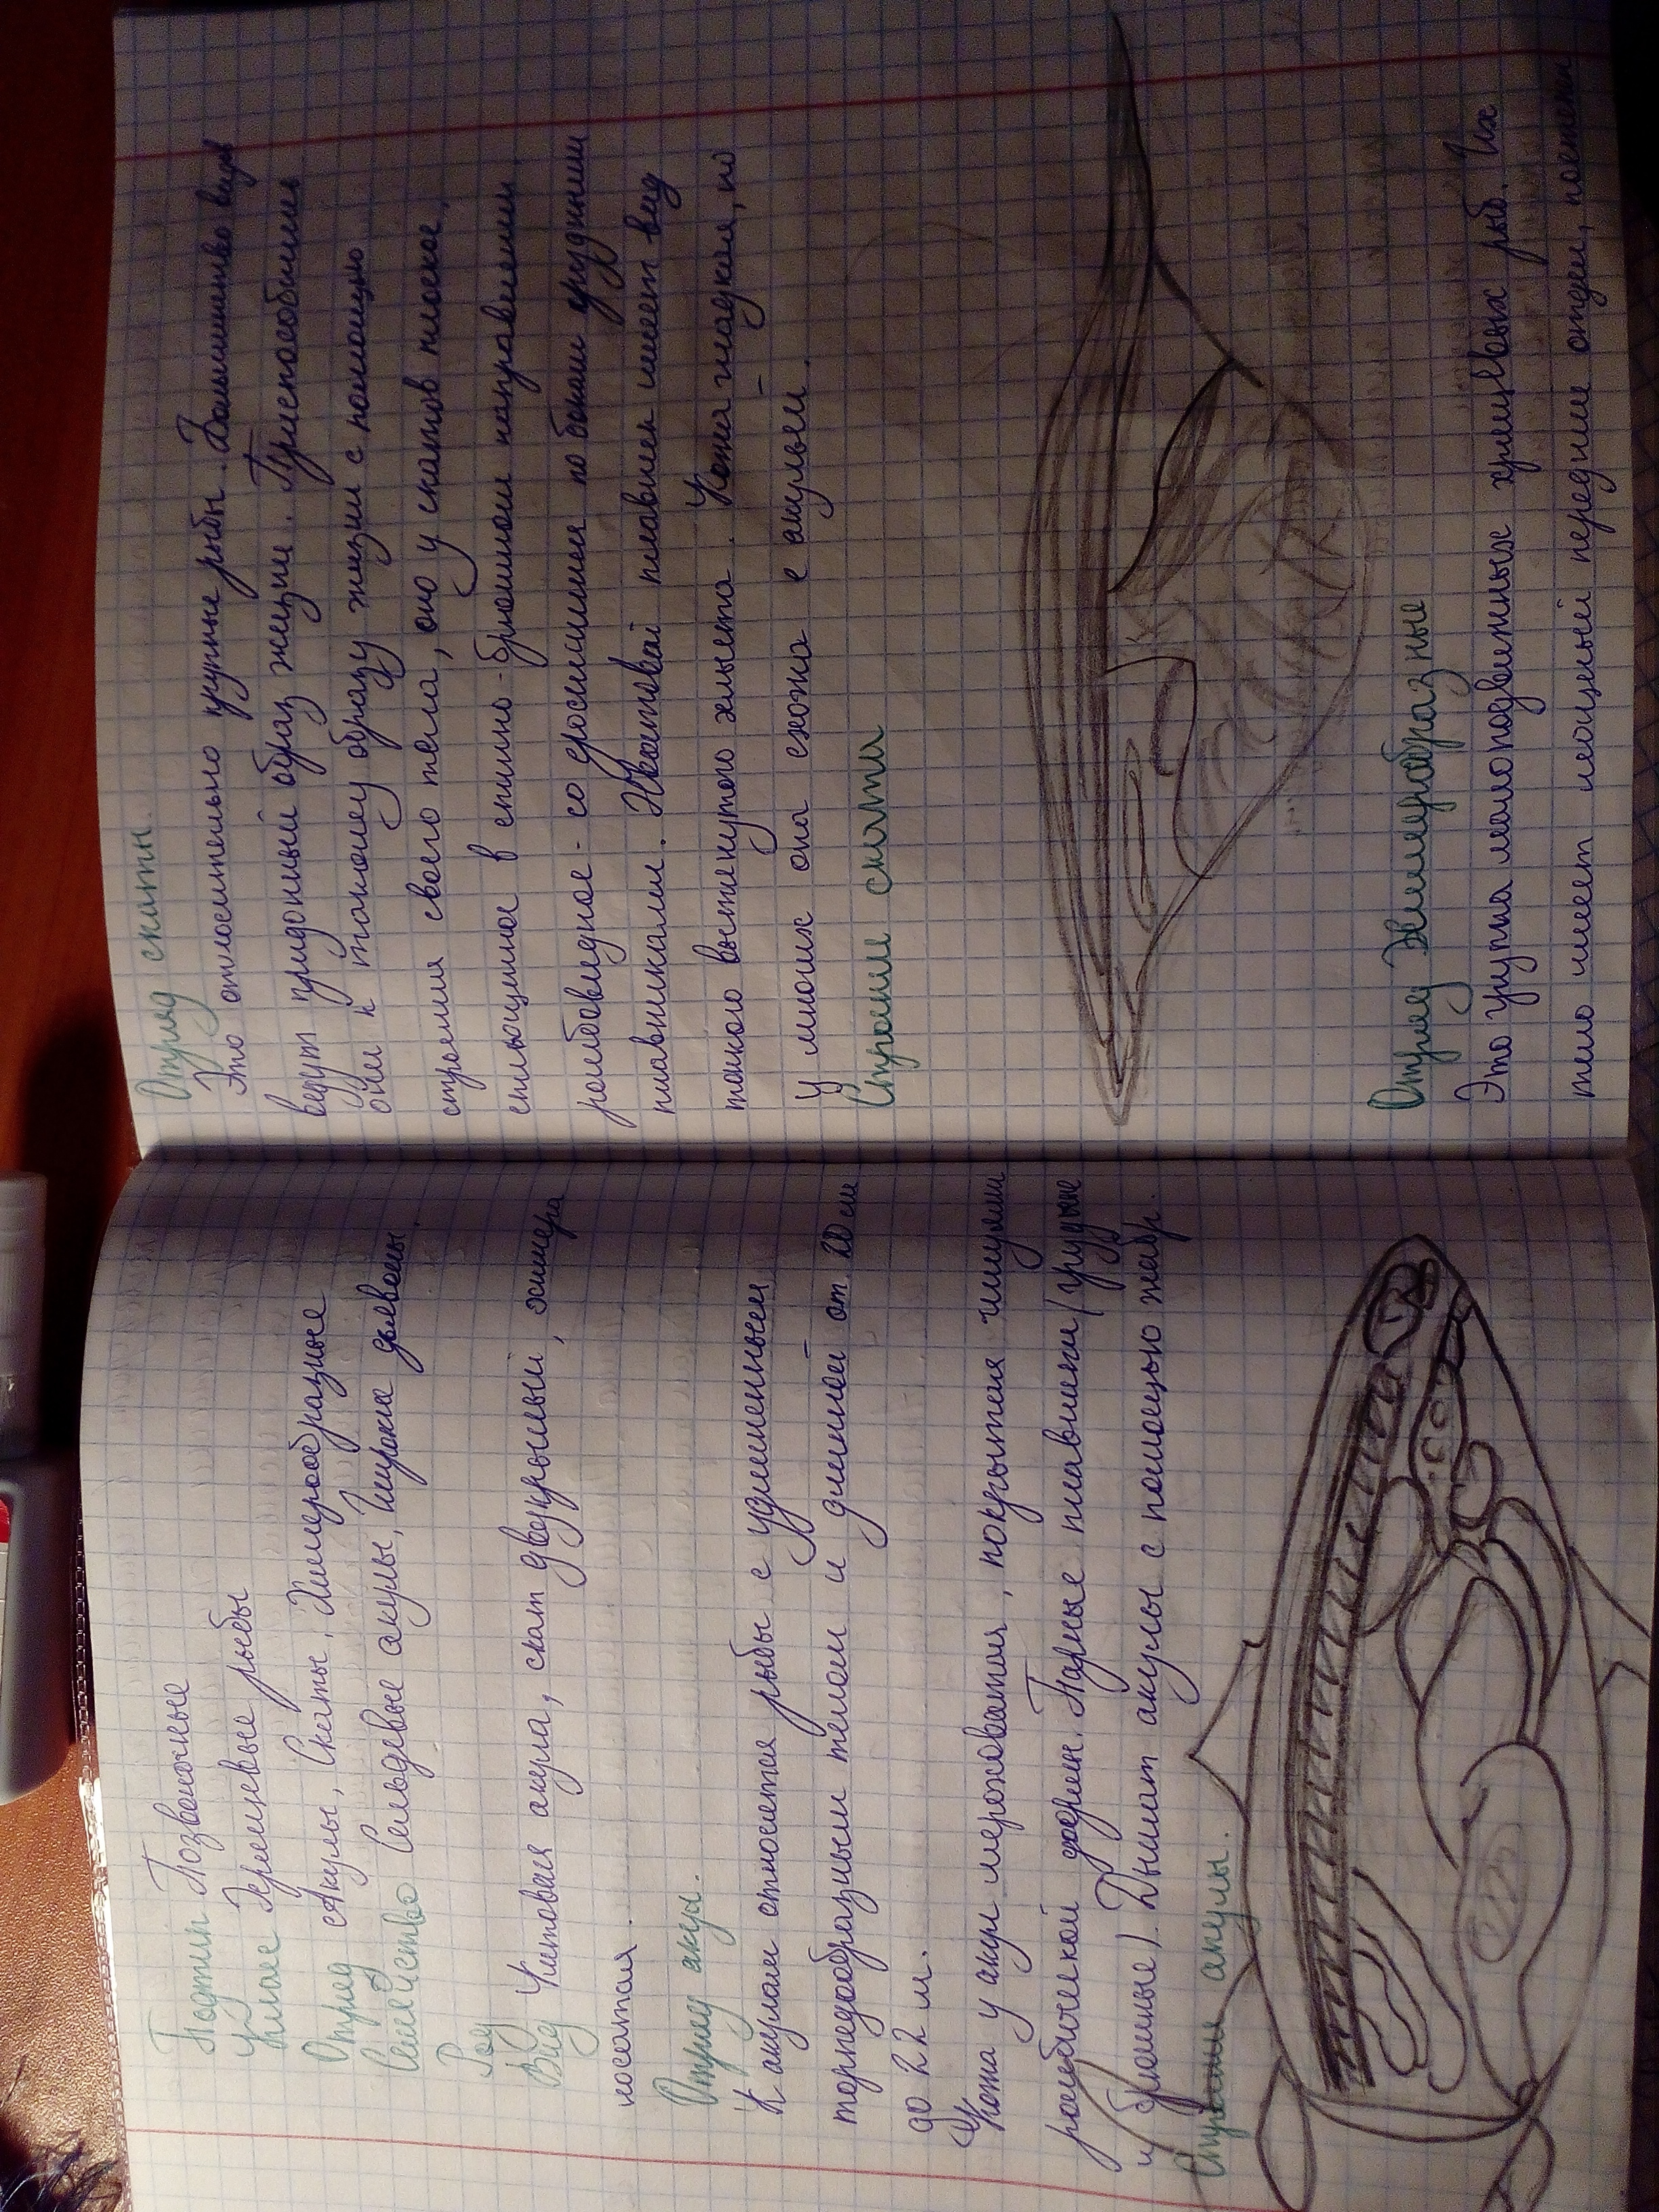 Подтип Позвоночные
Класс Хрящевые рыбы
Отряд Акулы, Скаты, Химерообразные
Семейство Сельдевые акулы,
Род
Вид Китовая акула, скат двукрылый, химера
носатая.
Отряд акулы.
К акулам относятся рыбы с удлиненным
торпедообразным телом и длинной от 20 см
до 22 м.
Кожа у акул шероховатая, покрытая чешуями
ромбической формы. Парные плавники (грудные
и брюшные). Дышат акулы с помощью жабр.
Строение акулы.
Отряд скаты.
Это относительно крупные рыбы. Большинство видов
ведут придонный образ жизни. Приспособились
они к такому образу жизни с помощью
строения своего тела, оно у скатов плоское,
сплющенное в спинно-брюшном направлении
ромбовидное - со сросшимися по бокам грудными
плавниками. Хвостовой плавник имеет вид
тонкого вытянутого хлыста. Кожа гладкая, но
у многих она схожа с акульей.
Строение ската
Отряд Химерообразные
Это группа малоподвижных хрящевых рыб. Их
тело имеет мощный передний отдел, постепен